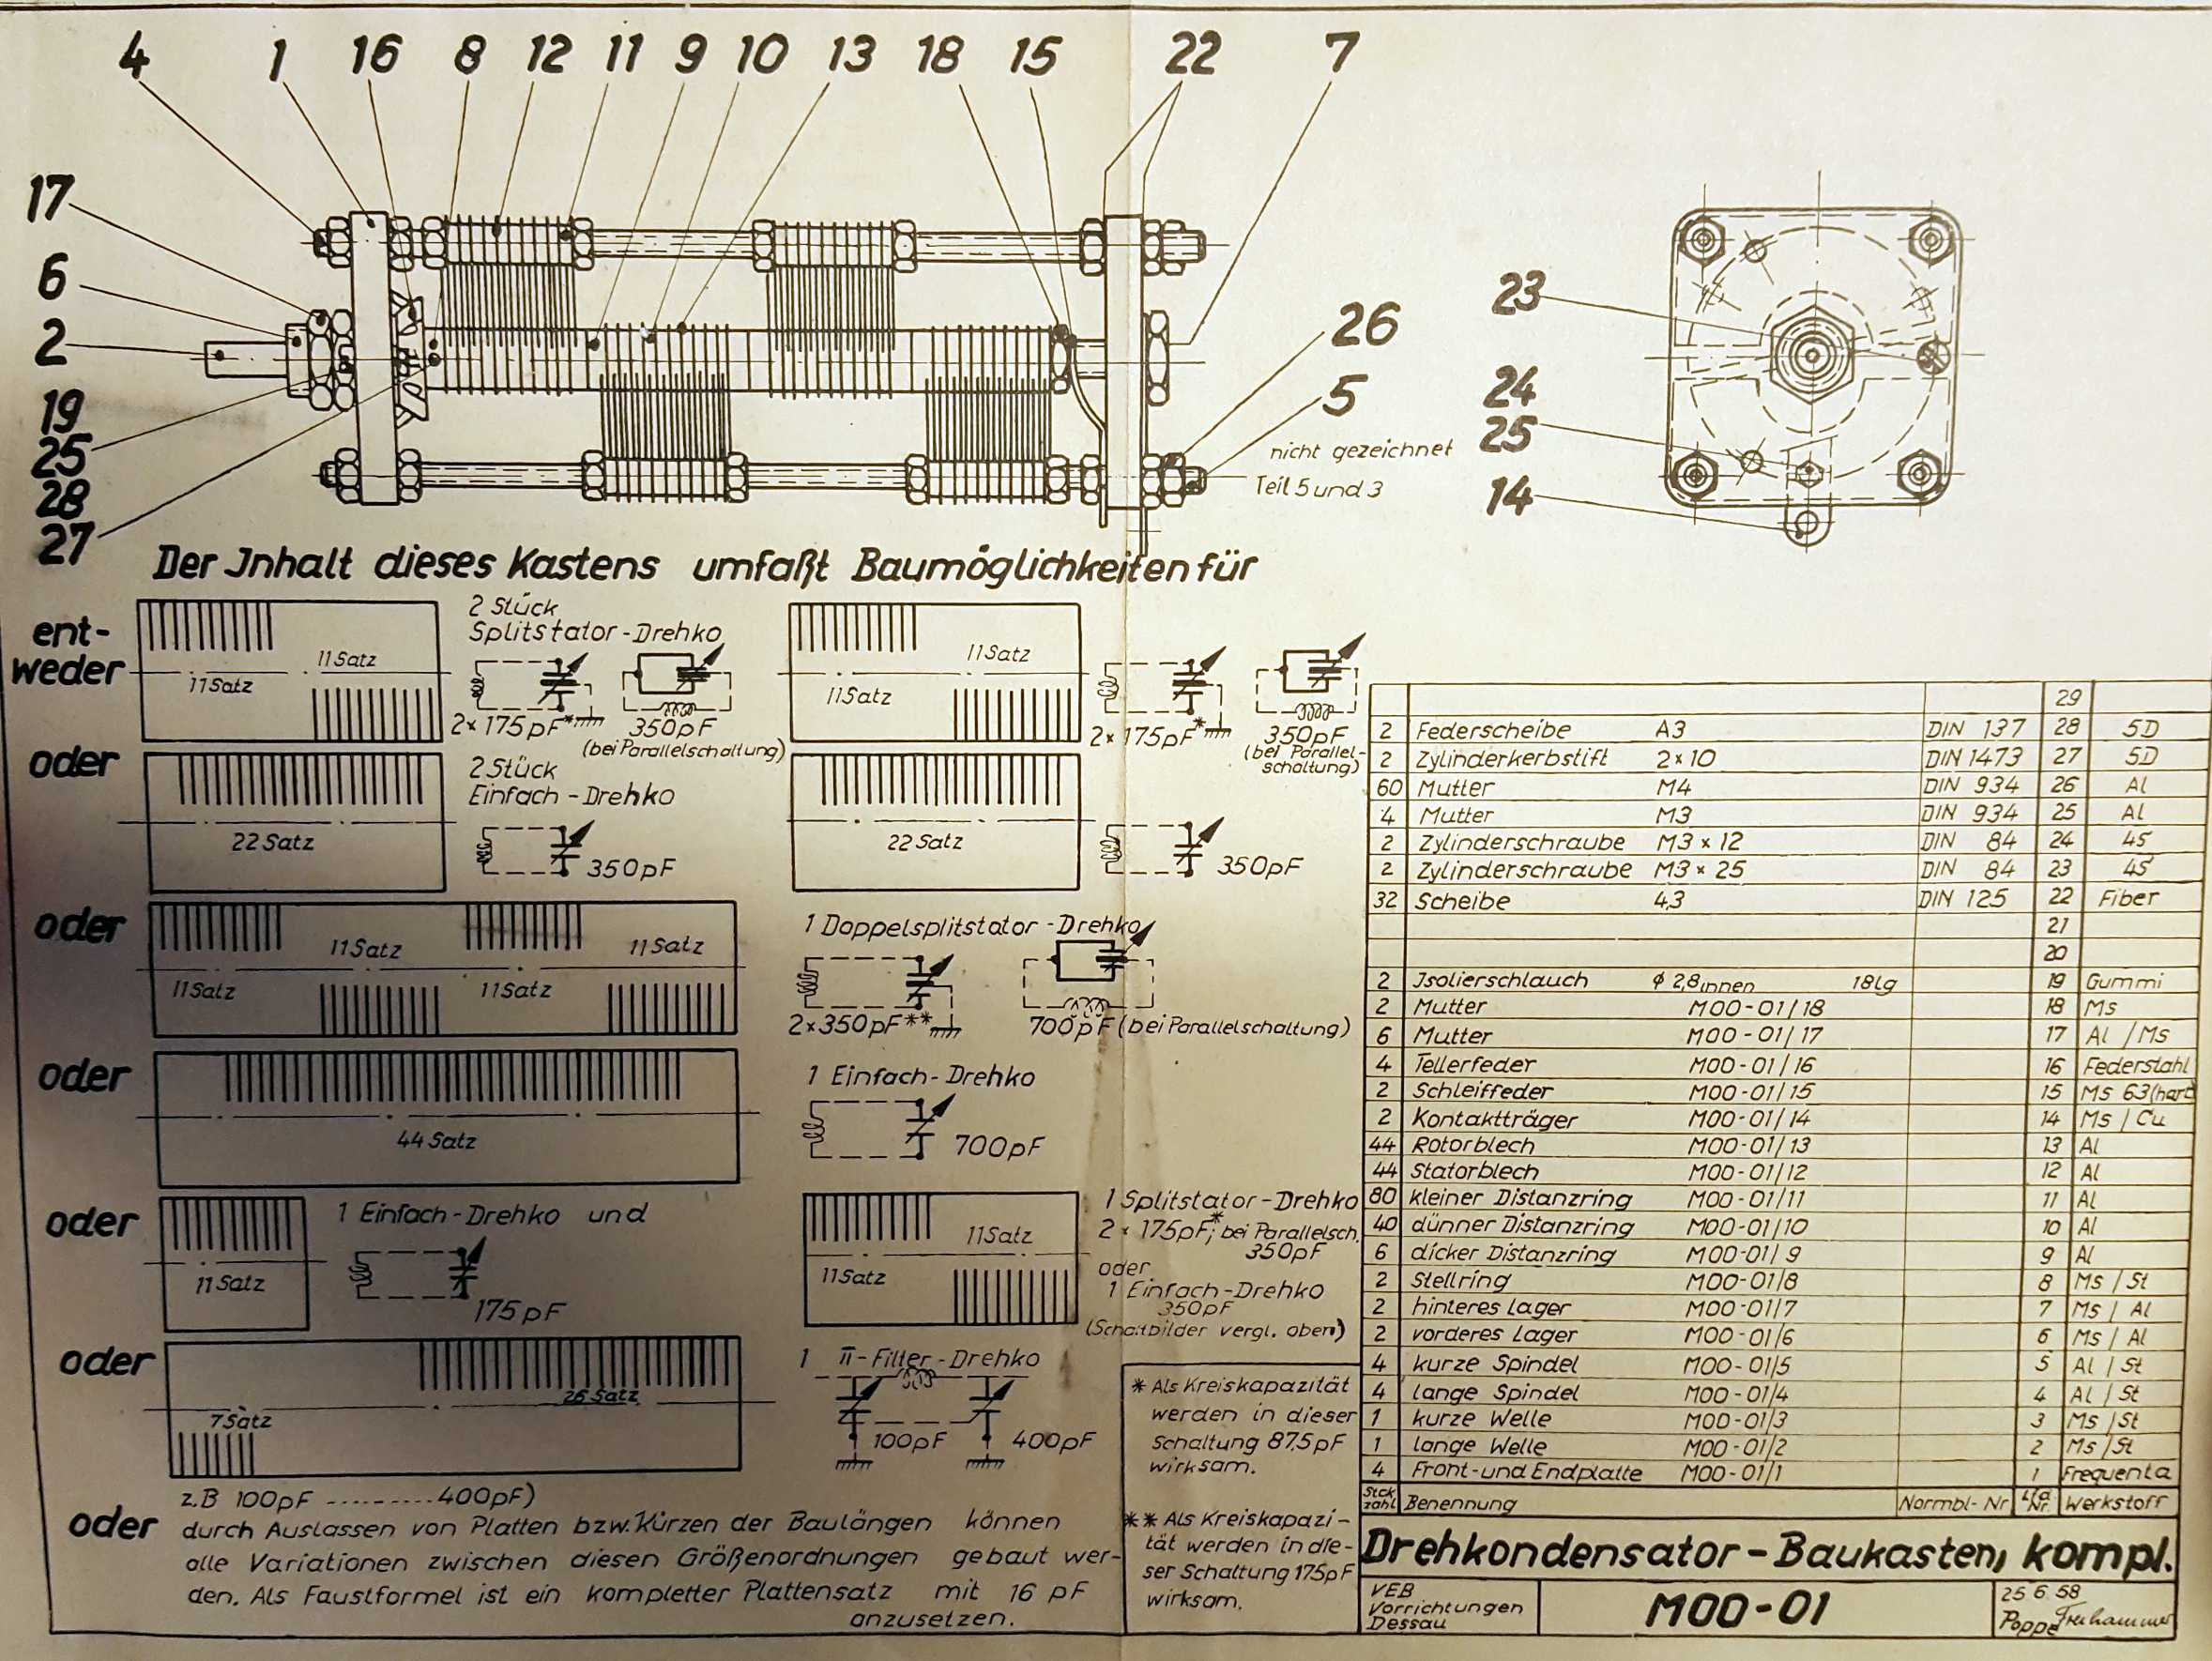 4 1 16 8 12 11 9 10 13 18 15 22 7
17
6
2
19
25
28
27
26
5
nicht gezeichnet
Teil 5 und 3
23
24
25
14
Der Jnhalt dieses Kastens umfaßt Baumöglichkeiten für
ent-
weder
11Satz
11Satz
2 Stück
Splitstator-Drehko
2×175pF*
350pF
(bei Parallelschaltung)
11Satz
11Satz
2×175pF*
350pF
(bei Parallel-
schaltung)
oder
22Satz
2 Stück
Einfach-Drehko
350pF
22Satz
350pF
oder
11Satz
11Satz
11Satz
11Satz
1 Doppelsplitstator-Drehko
2×350pF**
700pF (bei Parallelschaltung)
oder
44 Satz
1 Einfach-Drehko
700pF
oder
11 Satz
1 Einfach-Drehko und
175pF
11Satz
11Satz
1 Splitstator-Drehko
2×175pF*; bei Parallelsch.
350pF
oder
1 Einfach-Drehko
350pF
(Schaltbilder vergl. oben)
oder
7Satz
26 Satz
1 π-Filter-Drehko
100pF
400pF
z.B 100pF ---------- 400pF)
oder durch Auslassen von Platten bzw. Kürzen der Baulängen können
alle Variationen zwischen diesen Größenordnungen gebaut wer-
den. Als Faustformel ist ein kompletter Plattensatz mit 16 pF
anzusetzen.
* Als Kreiskapazität
werden in dieser
Schaltung 87,5pF
wirksam.
** Als Kreiskapazi-
tät werden in die-
ser Schaltung 175pF
wirksam.
29
2 Federscheibe A3 DIN 137 28 5D
2 Zylinderkerbstift 2×10 DIN 1473 27 5D
60 Mutter M4 DIN 934 26 Al
4 Mutter M3 DIN 934 25 Al
2 Zylinderschraube M3×12 DIN 84 24 4S
2 Zylinderschraube M3×25 DIN 84 23 4S
32 Scheibe 4,3 DIN 125 22 Fiber
21
20
2 Jsolierschlauch φ 2,8 innen 18lg 19 Gummi
2 Mutter M00-01/18 18 Ms
6 Mutter M00-01/17 17 Al/Ms
4 Tellerfeder M00-01/16 16 Federstahl
2 Schleiffeder M00-01/15 15 Ms 63(hart
2 Kontaktträger M00-01/14 14 Ms/Cu
44 Rotorblech M00-01/13 13 Al
44 Statorblech M00-01/12 12 Al
80 kleiner Distanzring M00-01/11 11 Al
40 dünner Distanzring M00-01/10 10 Al
6 dicker Distanzring M00-01/9 9 Al
2 Stellring M00-01/8 8 Ms/St
2 hinteres Lager M00-01/7 7 Ms/Al
2 vorderes Lager M00-01/6 6 Ms/Al
4 kurze Spindel M00-01/5 5 Al/St
4 lange Spindel M00-01/4 4 Al/St
1 kurze Welle M00-01/3 3 Ms/St
1 lange Welle M00-01/2 2 Ms/St
4 Front- und Endplatte M00-01/1 1 Frequenta
Stck zahl Benennung Normbl-Nr Lfd. Nr. Werkstoff
Drehkondensator-Baukasten, kompl.
VEB
Vorrichtungen
Dessau
M00-01
25 6 58
Poppe